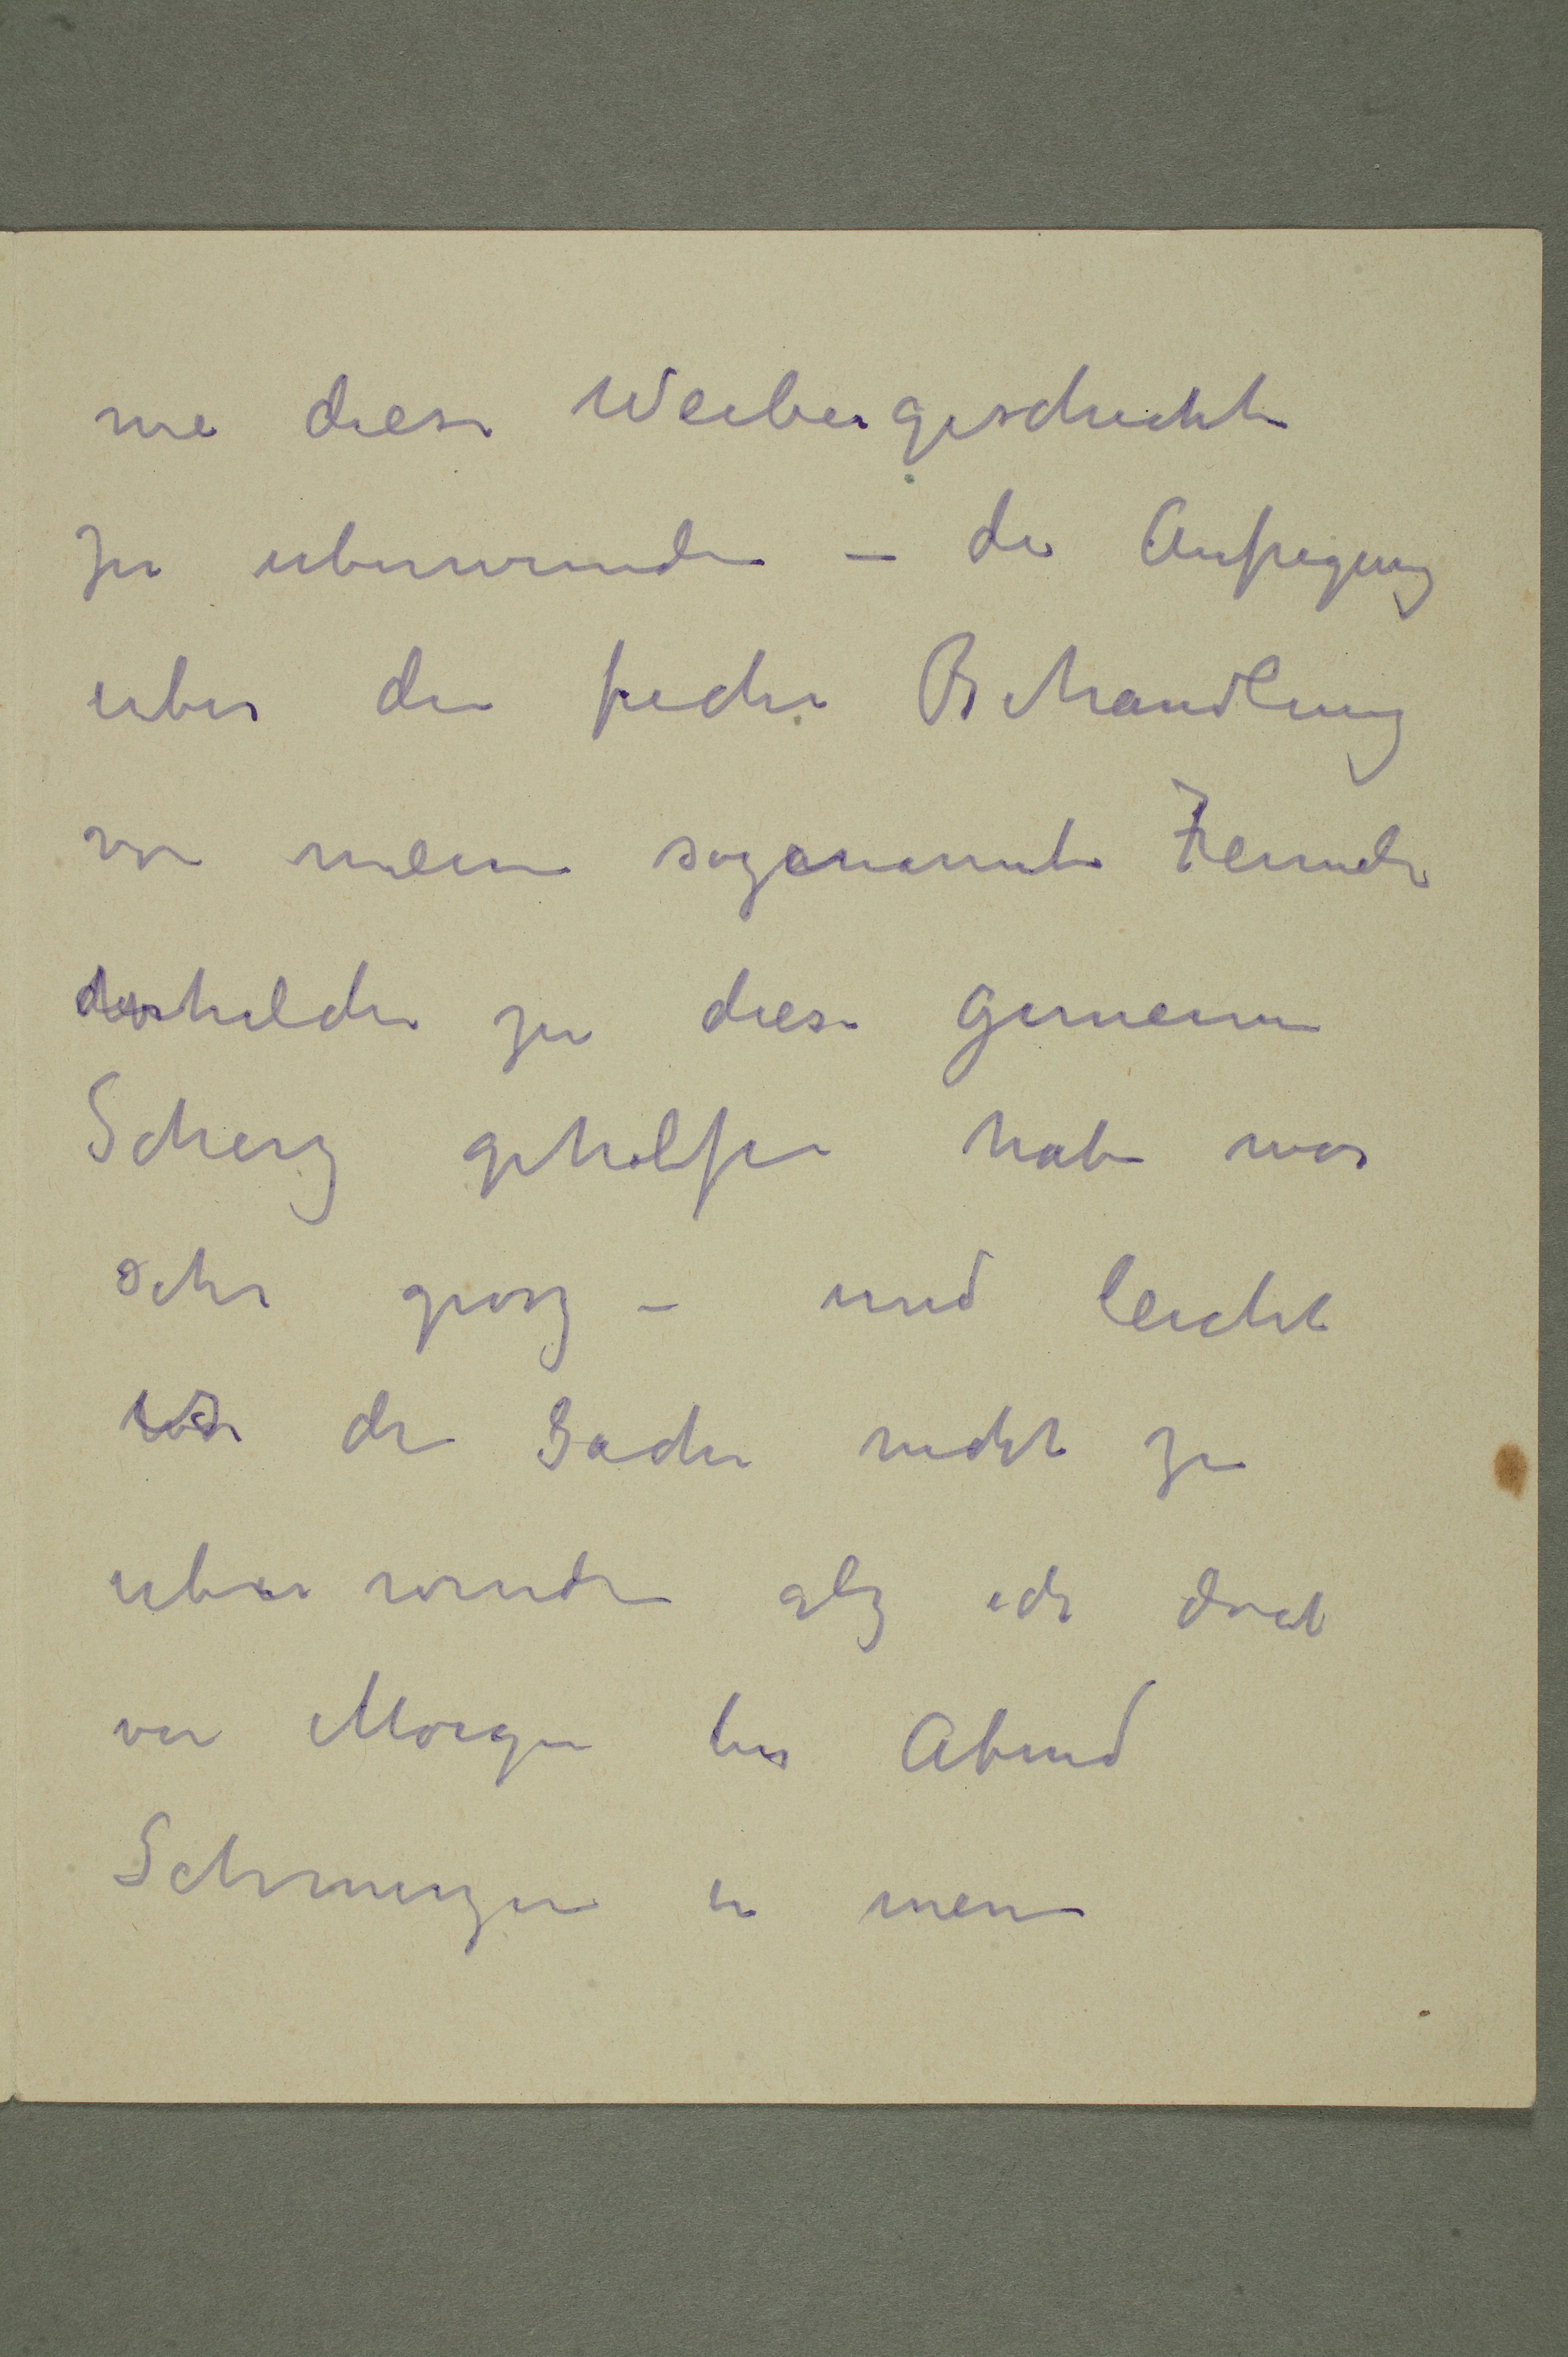 wie diese Weibergeschichte
zu uberwinden – die Aufregung
uber die freche Behandlung
von meine sogenannte Freunde
zu diese gemeinen
Scherz geholfen haben war
sehr grosz – und leicht
war die Sache nicht zu
uberwinden als ich dort
von Morgen bis Abend
Schmerzen in mein